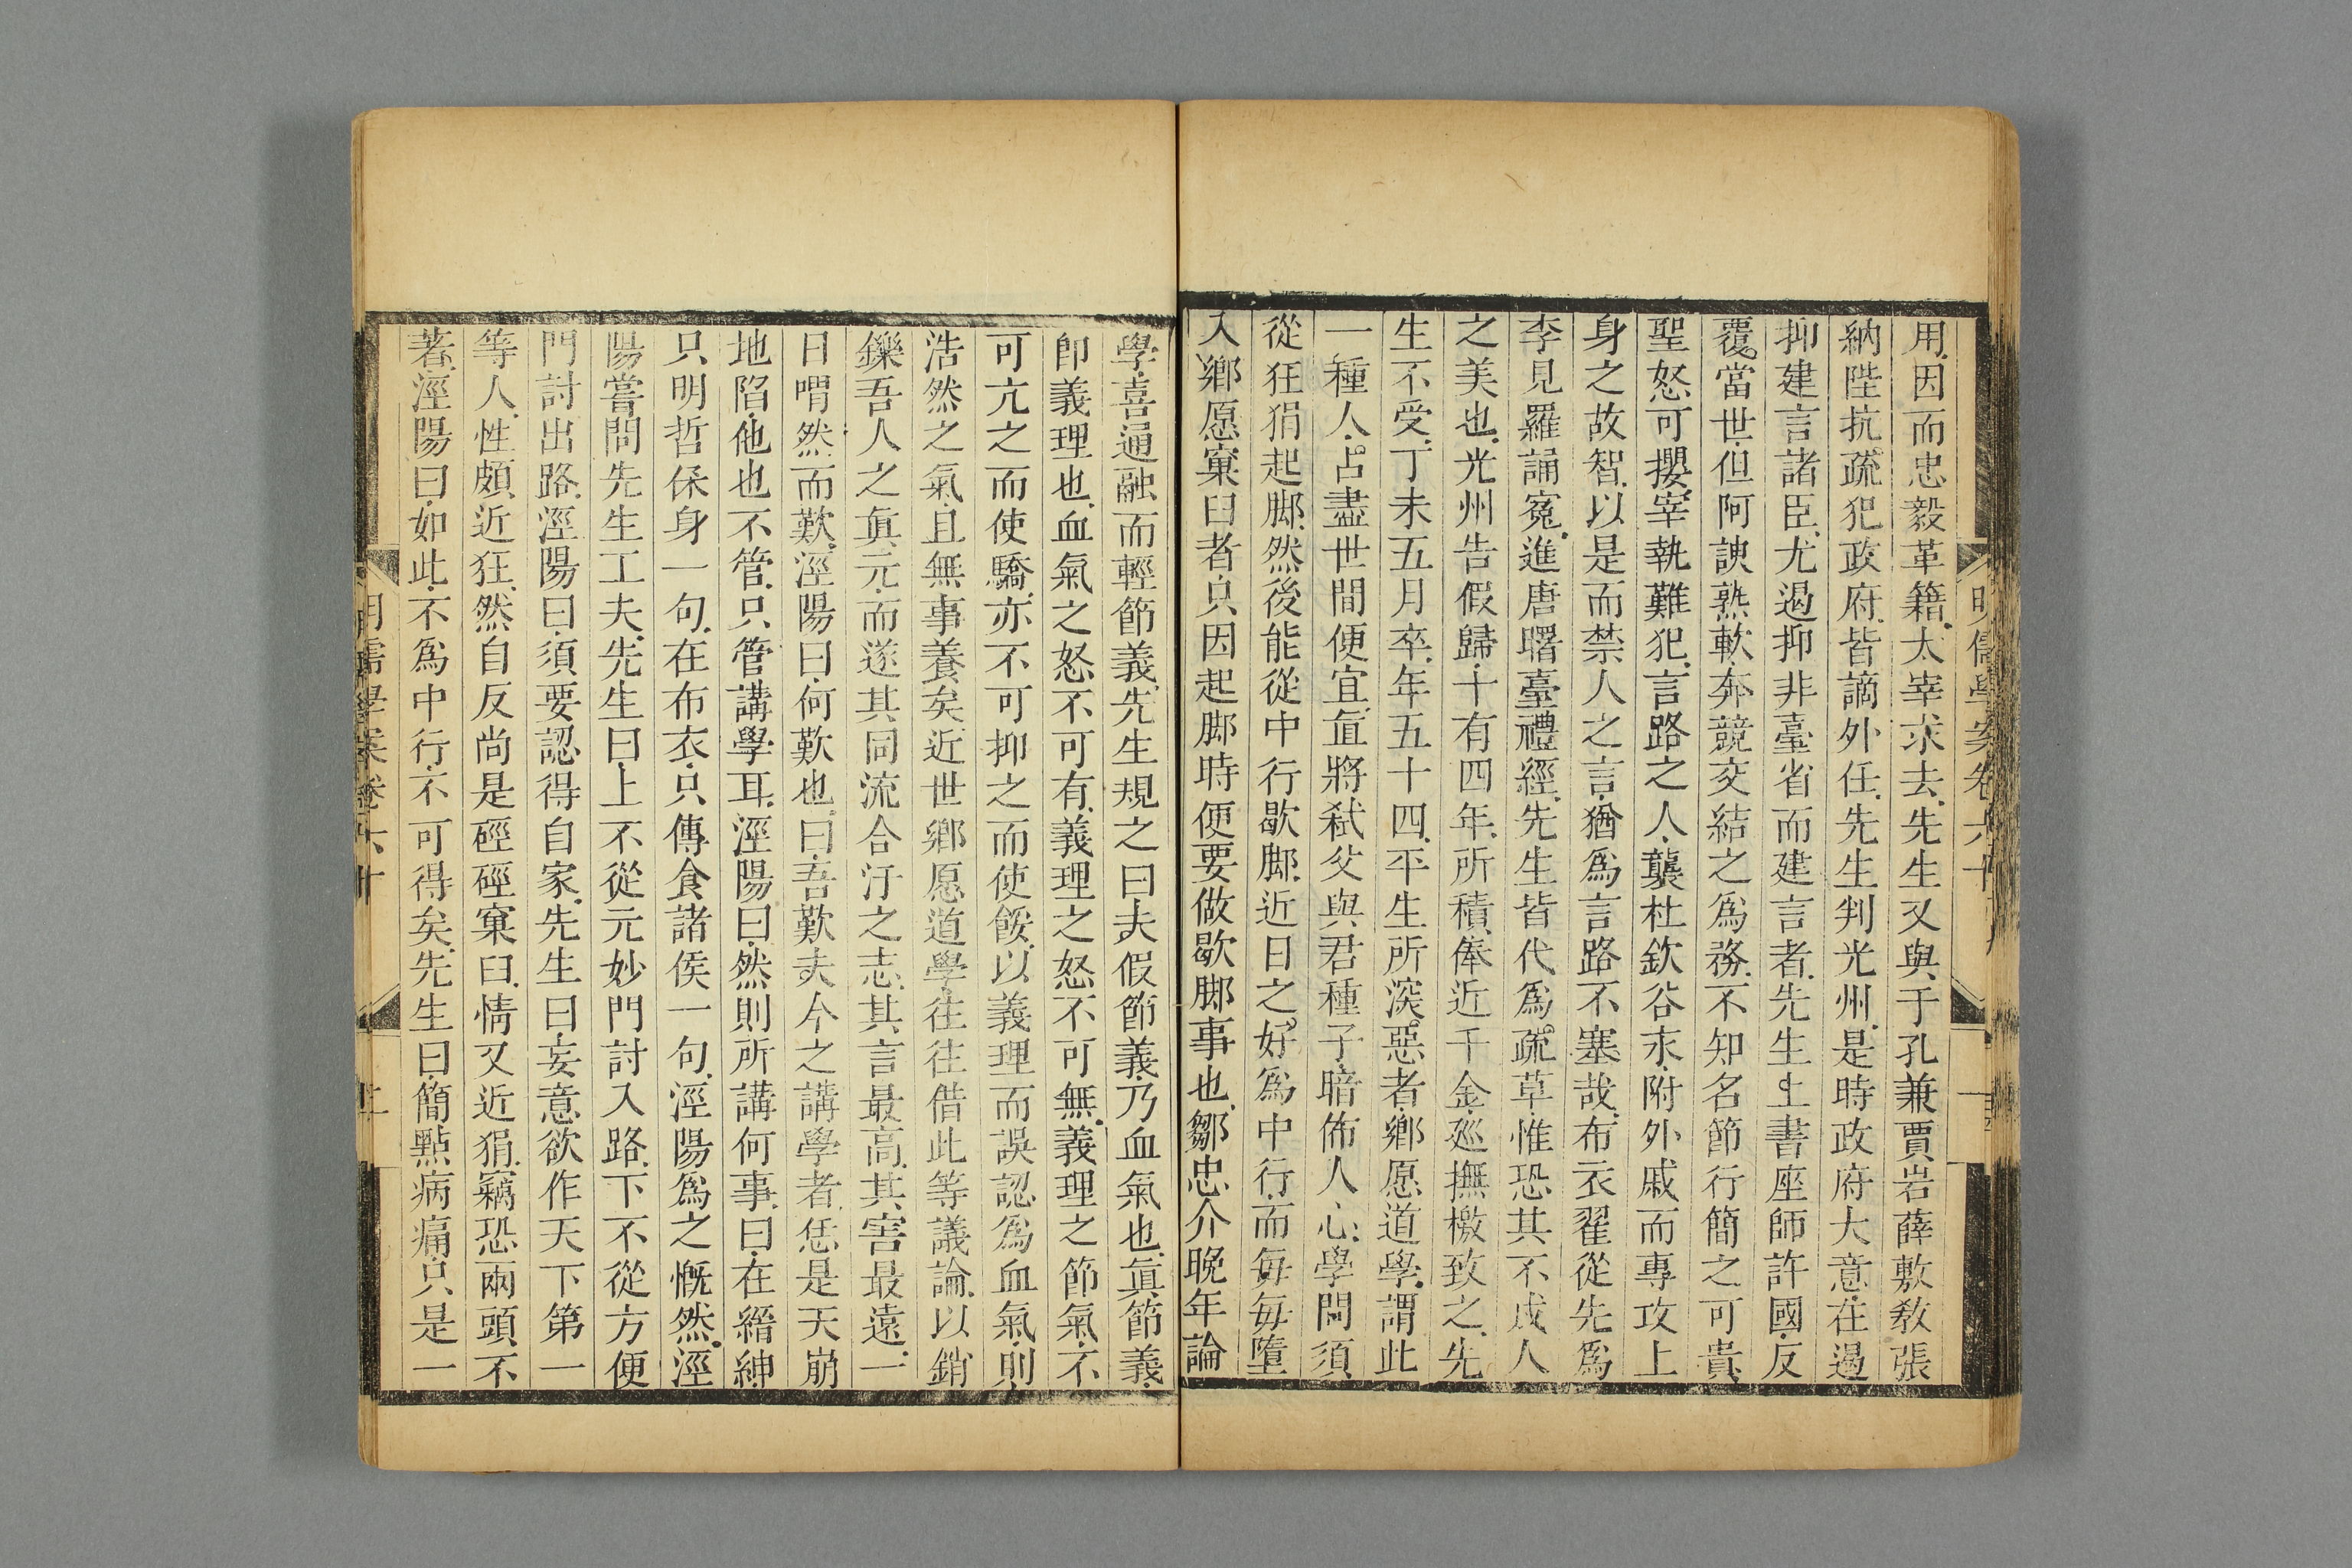 用因而忠毅革籍太宰求去先生又與于孔兼賈岩薛敷敎張
納陛抗疏犯政府皆謫外任先生判光州是時政府大意在遏
抑建言諸臣尤遏抑非臺省而建言者先生上書座師許國反
覆當世但阿諛熟軟奔競交結之爲務不知名節行簡之可貴
聖怒可攖宰執難犯言路之人襲杜欽谷永附外戚而專攻上
身之故智以是而禁人之言猶爲言路不塞哉布衣翟從先爲
李見羅誦寃進唐曙臺禮經先生皆代爲疏草惟恐其不成人
之美也光州告假歸十有四年所積俸近千金廵撫檄致之先
生不受丁未五月卒年五十四平生所深惡者鄉愿道學謂此
一種人占盡世間便宜直將弑父與君種子暗佈人心學問須
從狂狷起脚然後能從中行歇脚近日之好爲中行而每每墮
入鄉愿窠臼者只因起脚時便要做歇脚事也鄒忠介晚年論
學喜通融而輕節義先生規之曰夫假節義乃血氣也眞節義
卽義理也血氣之怒不可有義理之怒不可無義理之節氣不
可亢之而使驕亦不可抑之而使餒以義理而誤認爲血氣則
浩然之氣且無事養矣近世鄉愿道學往往借此等議論以銷
鑠吾人之眞元而遂其同流合汙之志其言最高其害最遠一
日喟然而歎涇陽曰何歎也曰吾歎夫今之講學者恁是天崩
地陷他也不管只管講學耳涇陽曰然則所講何事曰在縉紳
只明哲保身一句在布衣只傳食諸侯一句涇陽爲之慨然涇
陽嘗問先生工夫先生曰上不從元妙門討入路下不從方便
門討出路涇陽曰須要認得自家先生曰妄意欲作天下第一
等人性頗近狂然自反尚是硜硜窠臼情又近狷竊恐兩頭不
著涇陽曰如此不爲中行不可得矣先生曰簡點病痛只是一
明儒學案卷六十